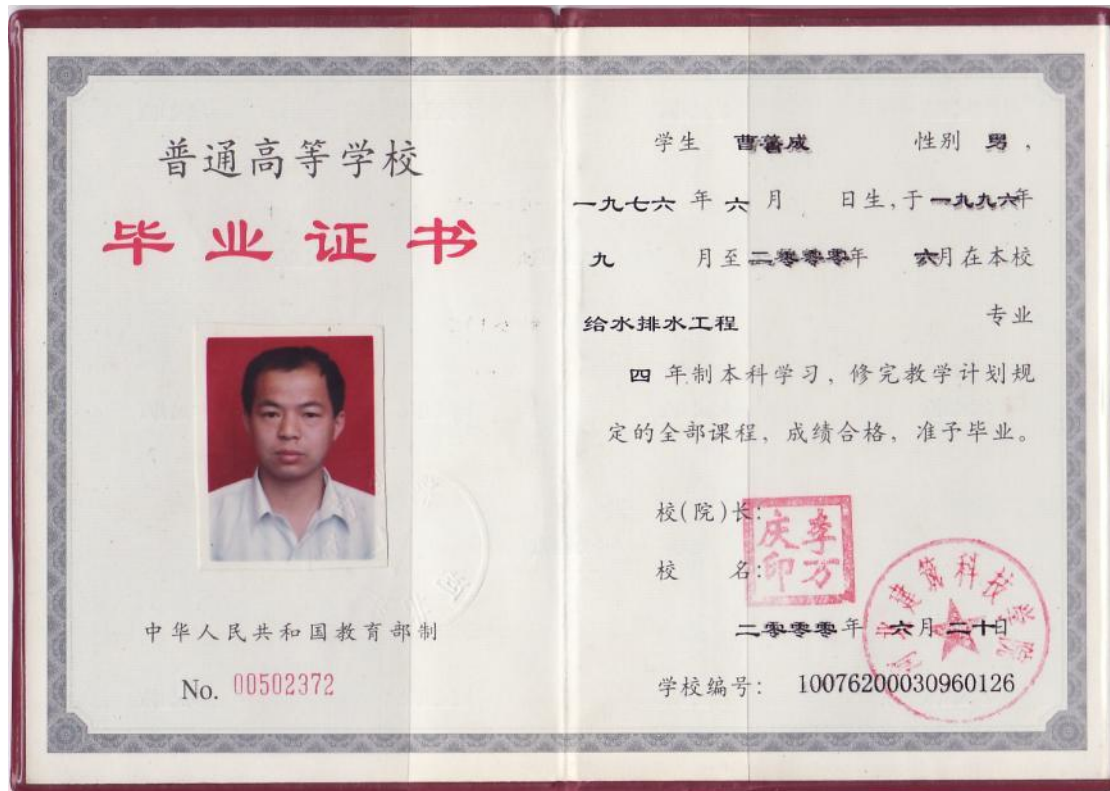 普通高等学校
毕业证书
中华人民共和国教育部制
No. 00502372
学生 曹善成 性别 男,
一九七六 年 六 月 日生,于 一九九六年
九 月至 二零零零年 六月在本校
给水排水工程 专业
四 年制本科学习, 修完教学计划规
定的全部课程, 成绩合格, 准予毕业。
校(院)长:
李万庆印
校 名:
河北建筑科技学院
二零零零年 六月 二十日
学校编号: 10076200030960126